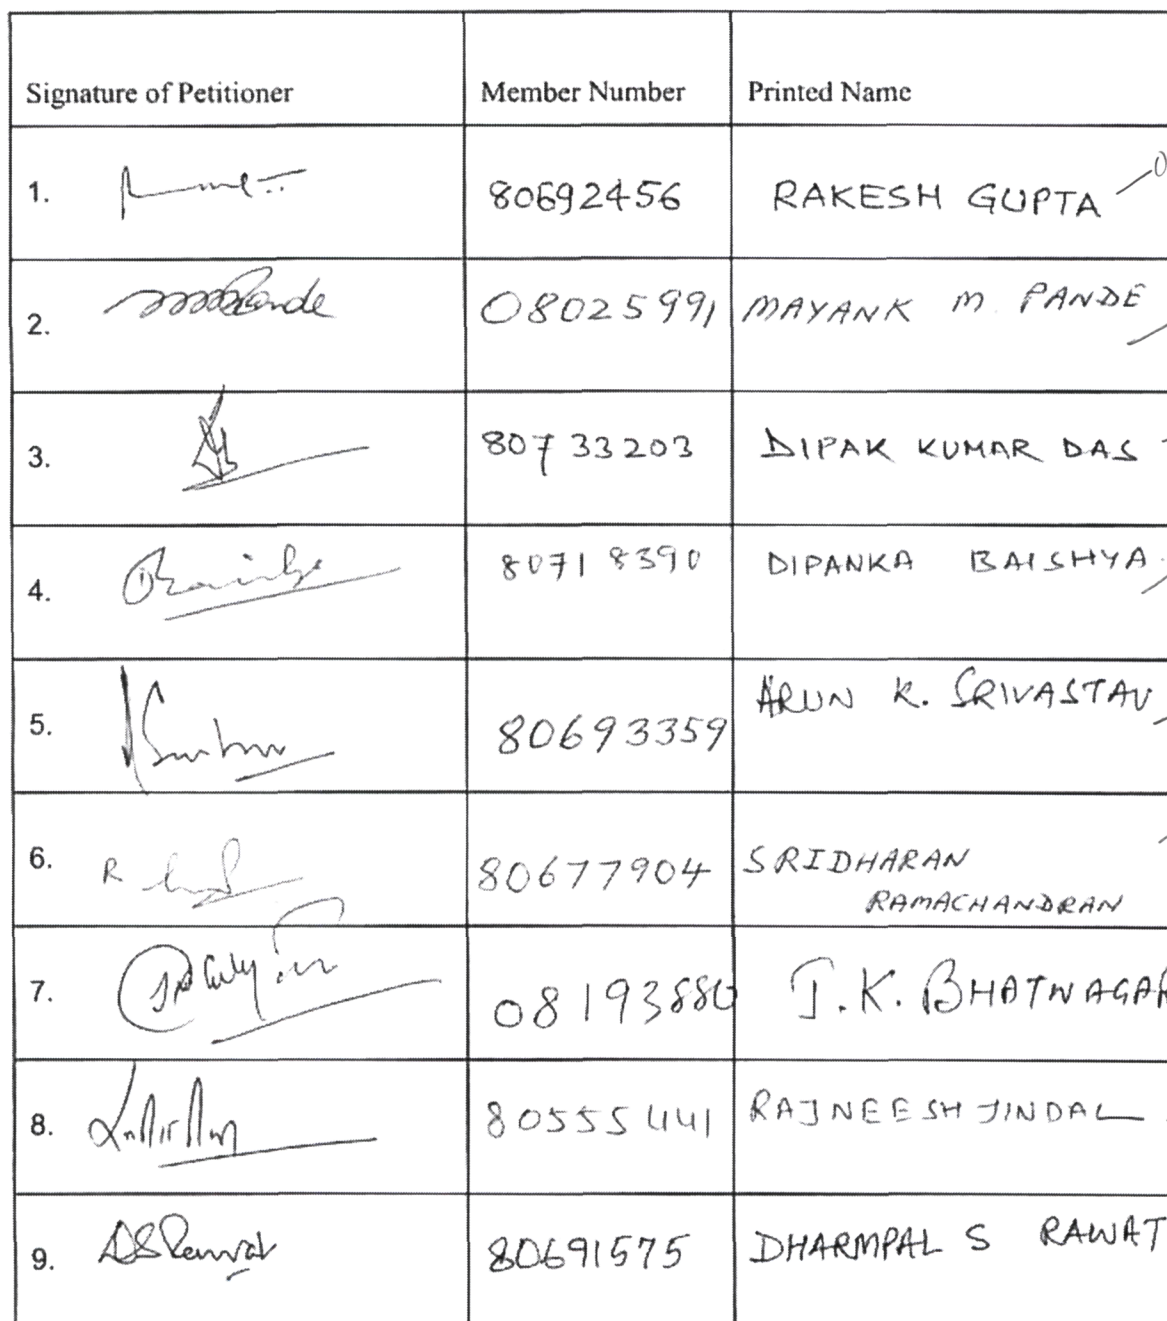 Signature of Petitioner Member Number Printed Name
1. 80692456 RAKESH GUPTA
2. Pande 08025991 MAYANK M. PANDE
3. 80733203 DIPAK KUMAR DAS
4. 80718390 DIPANKA BAISHYA
5. 80693359 ARUN K. SRIVASTAV
6. R 80677904 SRIDHARAN
RAMACHANDRAN
7. 08193880 J.K. BHATNAGAR
8. 80555441 RAJNEESH JINDAL
9. DSRawat 80691575 DHARMPAL S RAWAT